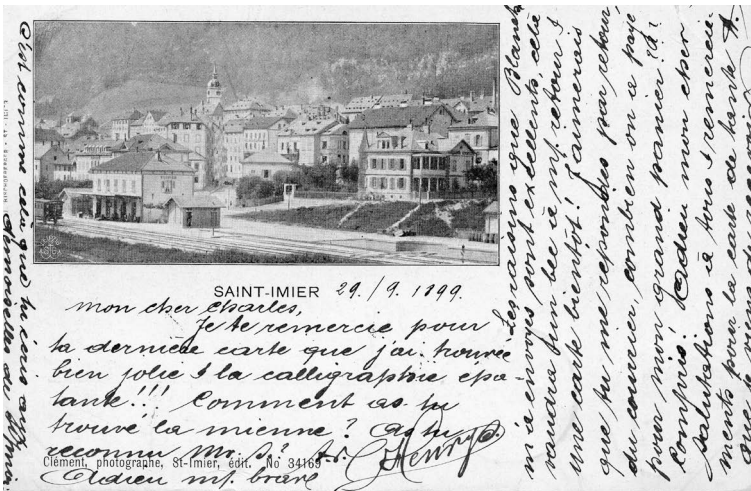 SAINT-IMIER 29./9. 1899.
mon cher Charles,
Je te remercie pour
ta dernière carte que j'ai trouvée
bien jolie & la calligraphie épa-
tante!!! Comment as-tu
trouvé la mienne? As-tu
reconnu Mr. S.?
Henry
Clément, photographe, St-Imier, édit. No 34169
Adieu brave
Les raisins que Blanche
m'a envoyés sont excellents, cela
vaudra un bec à retour &
une carte bientôt! J'aimerais
que tu me répondes par retour
du courrier, combien on a payé
pour mon grand panier? là
compris! Adieu mon cher
salutations à tous & remercie-
ments pour la carte de tante A.
C'est comme cela que tu